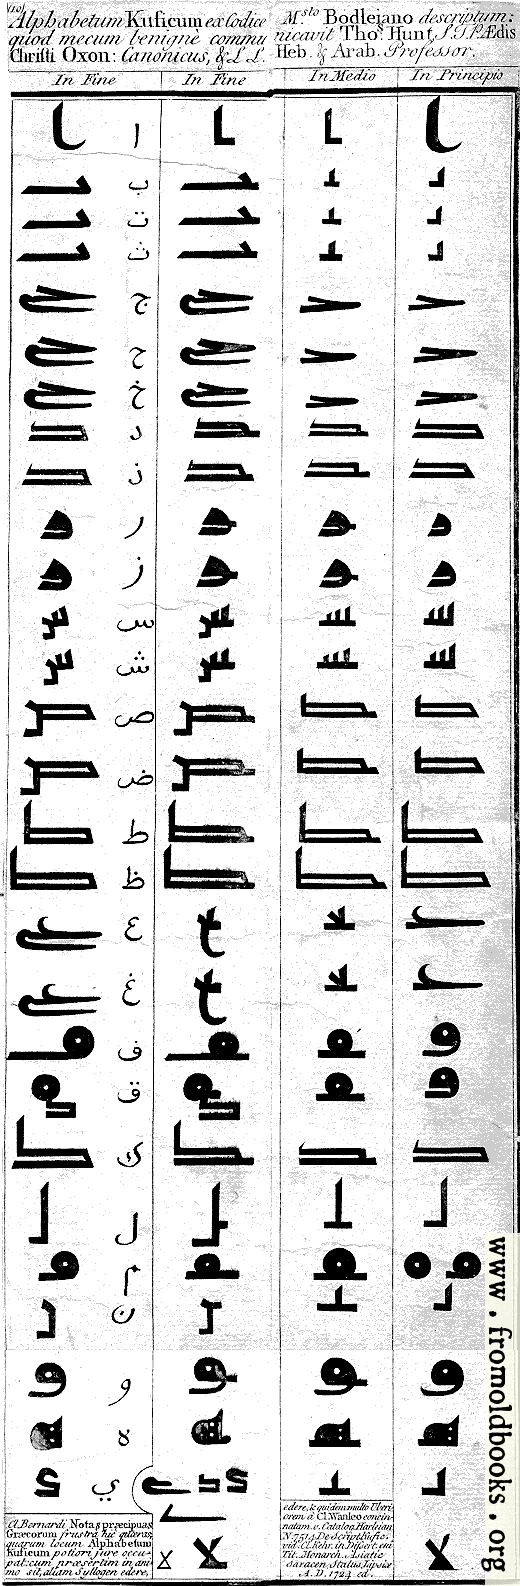 (10)
Alphabetum Kuficum ex Codice M.sto Bodlejano descriptum:
quod mecum benignè communicavit Thos Hunt, S.T.P. Ædis
Christi Oxon: Canonicus, & L L. Heb. & Arab. Professor.
In Fine In Fine In Medio In Principio
ا
ب
ت
ث
ج
ح
خ
د
ذ
ر
ز
س
ش
ص
ض
ط
ظ
ع
غ
ف
ق
ك
ل
م
ن
و
ه
ي
Cl. Bernardi Notas præcipuas
Græcorum frustra hic quæras,
quarum locum Alphabetum
Kuficum potiori jure occu-
pat: cum præsertim in ani-
mo sit, aliam Syllogen edere,
edere, & quidem multo Uberi-
orem a Cl. Wanleo concin-
natam. v. Catalog. Harleian
N. 7514. De Script. Kufic.
vid. Cl. Kehr. in Dissert. cui
Tit. Monarch. Asiatic
Saracen. Status, Lipsiæ
A. D. 1724 ed.
www.fromoldbooks.org